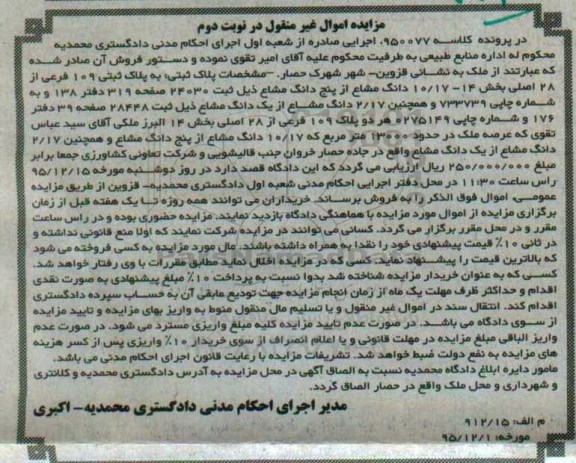 مزایده اموال غیر منقول در نوبت دوم
در پرونده کلاسه ۹۵۰۰۷۷، اجرایی صادره از شعبه اول اجرای احکام مدنی دادگستری محمدیه
محکوم له اداره منابع طبیعی به طرفیت محکوم علیه آقای امیر تقوی نموده و دستور فروش آن صادر شده
که عبارتند از ملک به نشانی قزوین- شهر شهرک حصار. -مشخصات پلاک ثبتی: به پلاک ثبتی ۱۰۹ فرعی از
۲۸ اصلی بخش ۱۴- ۱۰/۱۷ دانگ مشاع از پنج دانگ مشاع ذیل ثبت ۲۴۰۳۰ صفحه ۳۱۹ دفتر ۱۳۸ و به
شماره چاپی ۷۳۳۷۳۹ و همچنین ۲/۱۷ دانگ مشاع از یک دانگ مشاع ذیل ثبت ۲۸۴۴۸ صفحه ۳۹ دفتر
۱۷۶ و شماره چاپی ۱۲۷۵۱۴۹ هر دو پلاک ۱۰۹ فرعی از ۲۸ اصلی بخش ۱۴ البرز ملکی آقای سید عباس
تقوی که عرصه ملک در حدود ۱۳۰۰۰ متر مربع که ۱۰/۱۷ دانگ مشاع از پنج دانگ مشاع و همچنین ۲/۱۷
دانگ مشاع از یک دانگ مشاع واقع در جاده حصار خروان جنب قالیشویی و شرکت تعاونی کشاورزی جمعا برابر
مبلغ ۲۵۰/۰۰۰/۰۰۰ ریال ارزیابی می گردد که این دادگاه قصد دارد در روز دوشنبه مورخه ۹۵/۱۲/۱۵
راس ساعت ۱۱:۳۰ در محل دفتر اجرایی احکام مدنی شعبه اول دادگستری محمدیه- قزوین از طریق مزایده
عمومی، اموال فوق الذکر را به فروش برساند. خریداران می توانند همه روزه تا یک هفته قبل از زمان
برگزاری مزایده از اموال مورد مزایده با هماهنگی دادگاه بازدید نمایند. مزایده حضوری بوده و در راس ساعت
مقرر و در محل مقرر برگزار می گردد. کسانی می توانند در مزایده شرکت نمایند که اولا منع قانونی نداشته و
در ثانی ۱۰٪ قیمت پیشنهادی خود را نقدا به همراه داشته باشند. مال مورد مزایده به کسی فروخته می شود
که بالاترین قیمت را پیشنهاد نماید. کسانی که در مزایده اخلال نماید مطابق مقررات با وی رفتار خواهد شد.
کسی که به عنوان خریدار مزایده شناخته شد بدوا نسبت به پرداخت ۱۰٪ مبلغ پیشنهادی به صورت نقدی
اقدام و حداکثر ظرف مهلت یک ماه از زمان انجام مزایده جهت تودیع مابقی آن به حساب سپرده دادگستری
اقدام کند. انتقال سند در اموال غیر منقول و یا تسلیم مال منقول منوط به واریز بهای مزایده و تایید مزایده
از سوی دادگاه می باشد. در صورت عدم تایید مزایده کلیه مبلغ واریزی مسترد می شود. در صورت عدم
واریز الباقی مبلغ مزایده در مهلت قانونی و یا اعلام انصراف از سوی خریدار ۱۰٪ واریزی پس از کسر هزینه
های مزایده به نفع دولت ضبط خواهد شد. تشریفات مزایده با رعایت قانون اجرای احکام مدنی می باشد.
مامور دایره ابلاغ دادگاه محمدیه نسبت به الصاق آگهی در محل مزایده به آدرس دادگستری محمدیه و کلانتری
و شهرداری و محل ملک واقع در حصار الصاق گردد.
مدیر اجرای احکام مدنی دادگستری محمدیه- اکبری
م الف: ۹۱۲/۱۵
مورخه: ۹۵/۱۲/۱